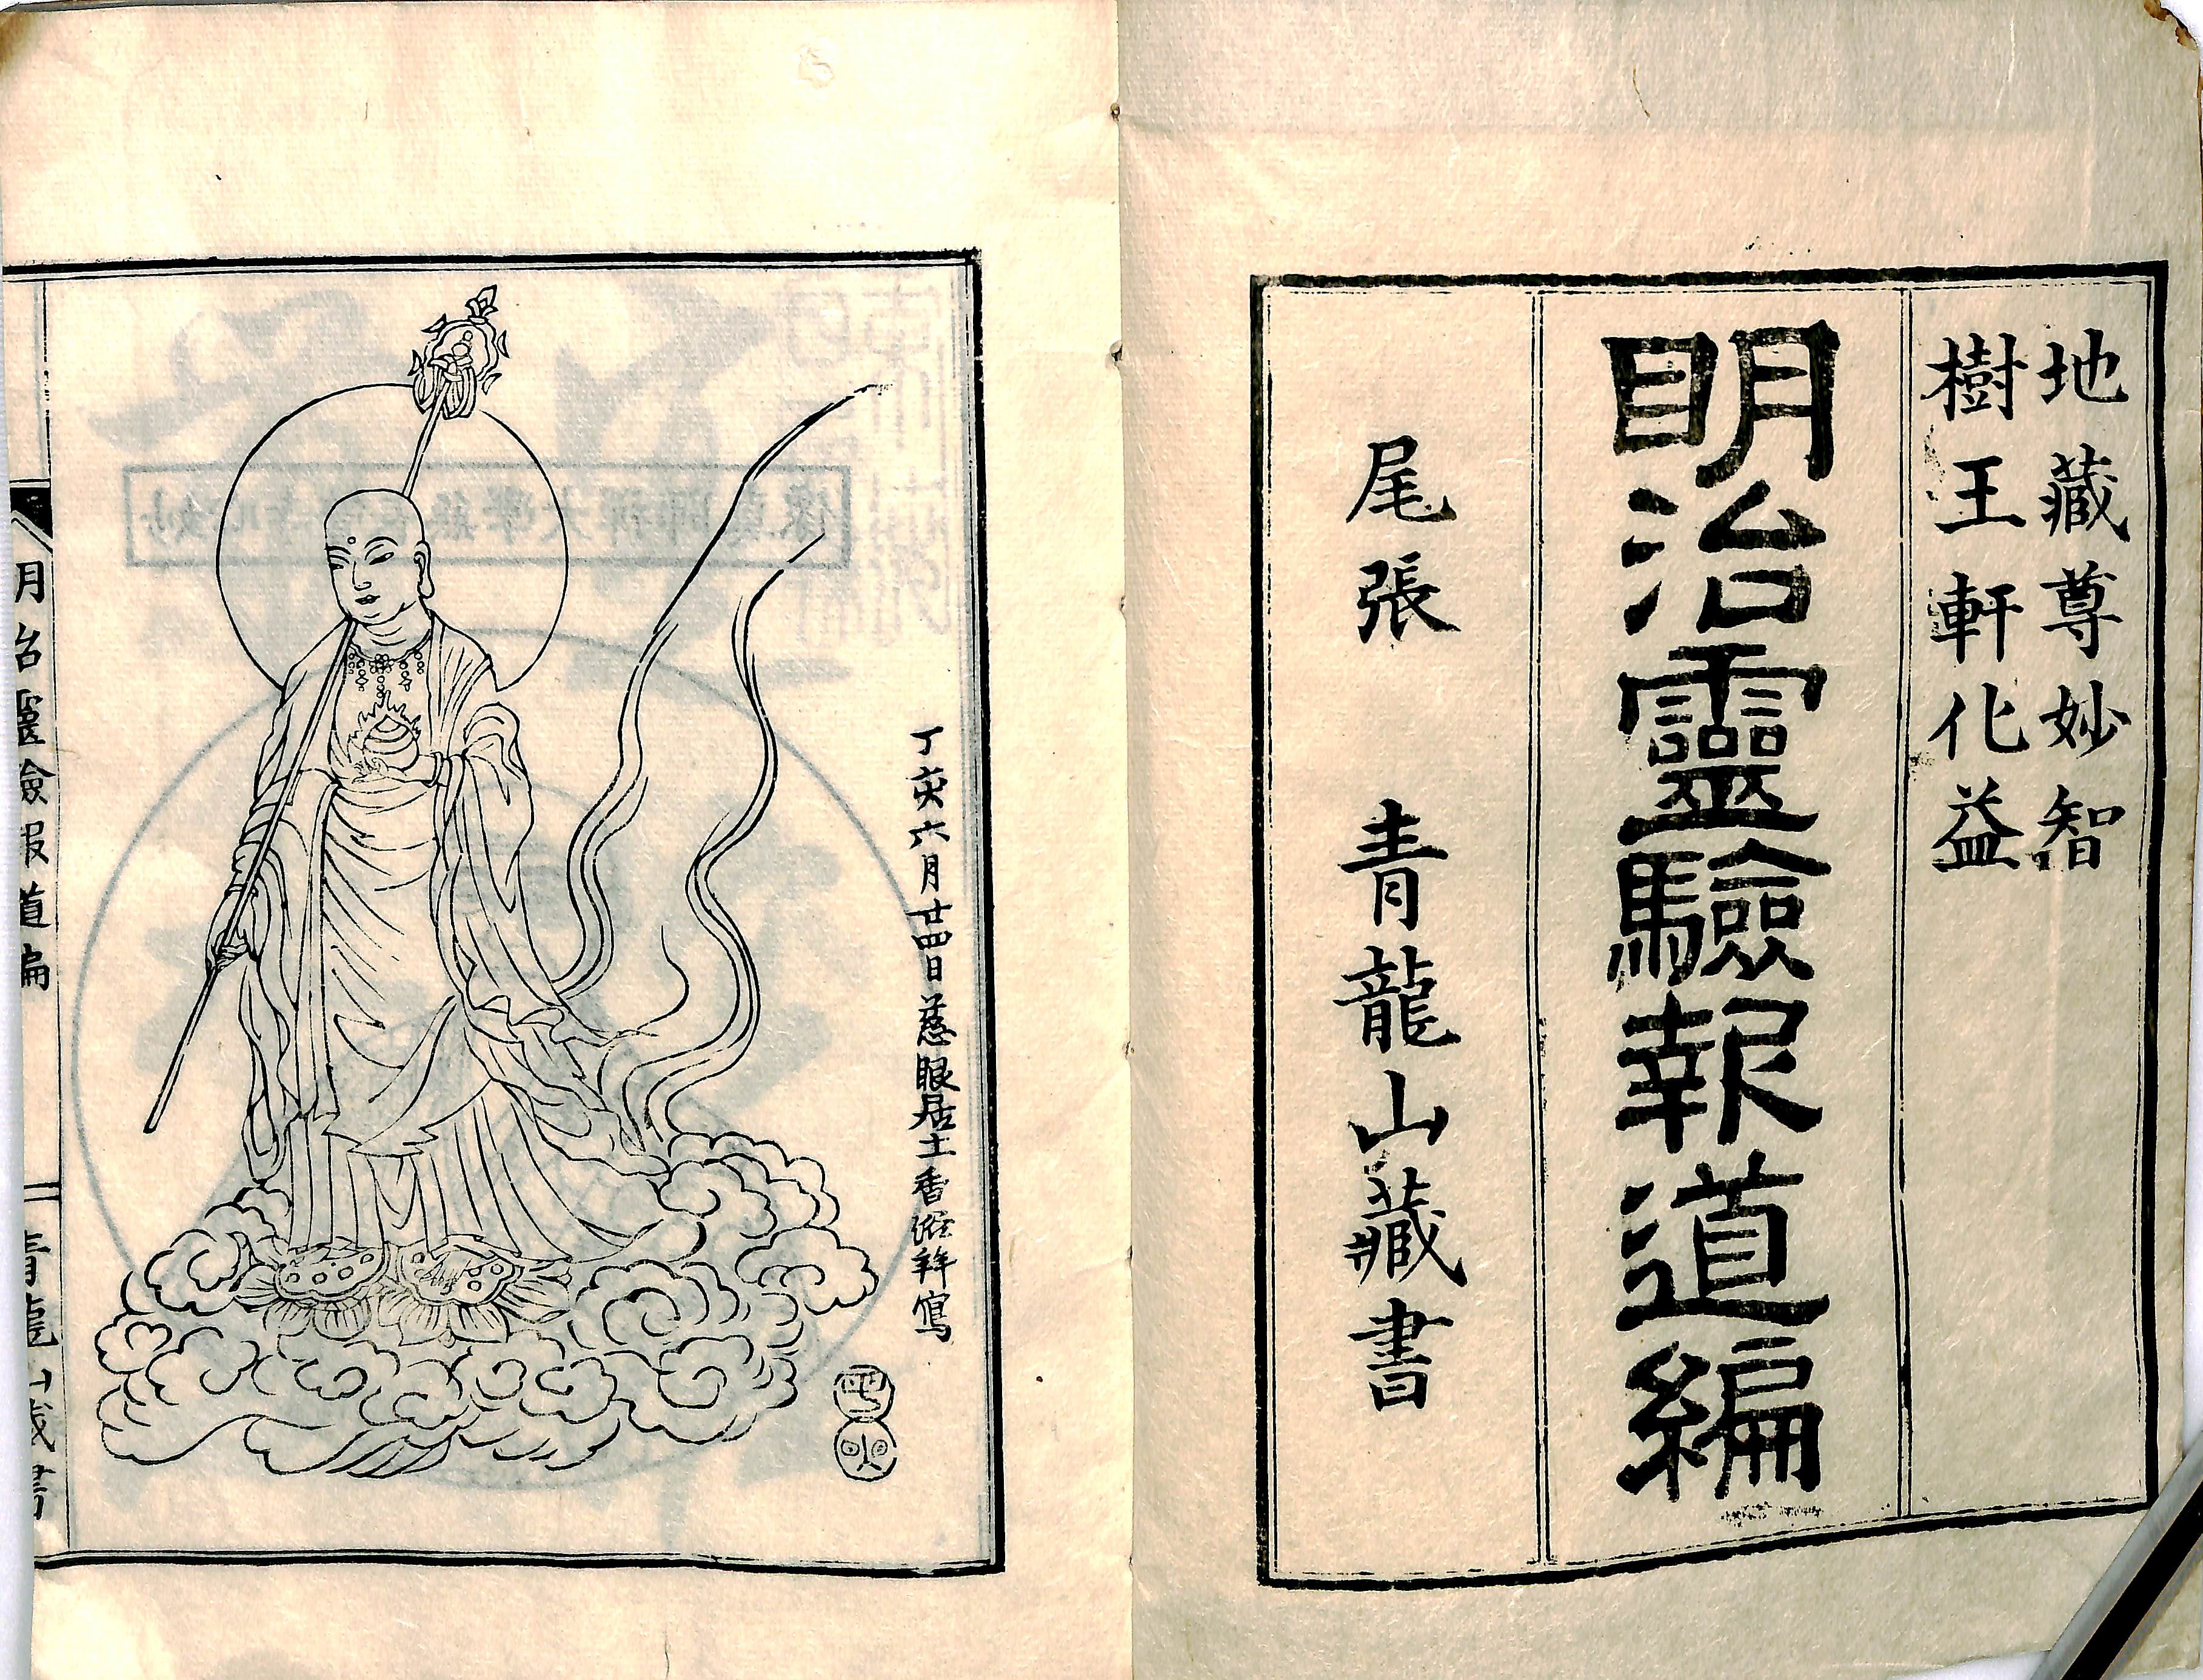 地藏尊妙智
樹王軒化益
明治靈驗報道編
尾張　青龍山藏書
丁亥六月廿四日慈眼居士香
寫